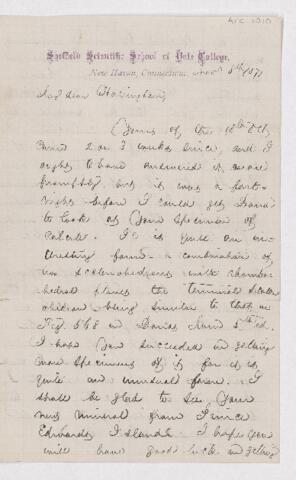 Sheffield Scientific School of Yale College.
New Haven, Connecticut, Nov. 8th 1871
My dear Harrington,
Yours of the 18th Oct
came 2 or 3 weeks since, and I
ought to have answered it more
promptly but it was a fort-
night before I could get Dana
to look at your specimen of
calcite. It is quite an in-
teresting form - a combination of
two scalenohedrons with rhombo-
hedral planes the terminal scalen-
ohedron being similar to that in
Fig 568 in Danas Min 5th Ed.
I hope you succeeded in getting
more specimens of it for it is
quite an unusual form. I
shall be glad to see your
new mineral from Prince
Edwards Island. I hope you
will have good luck in getting